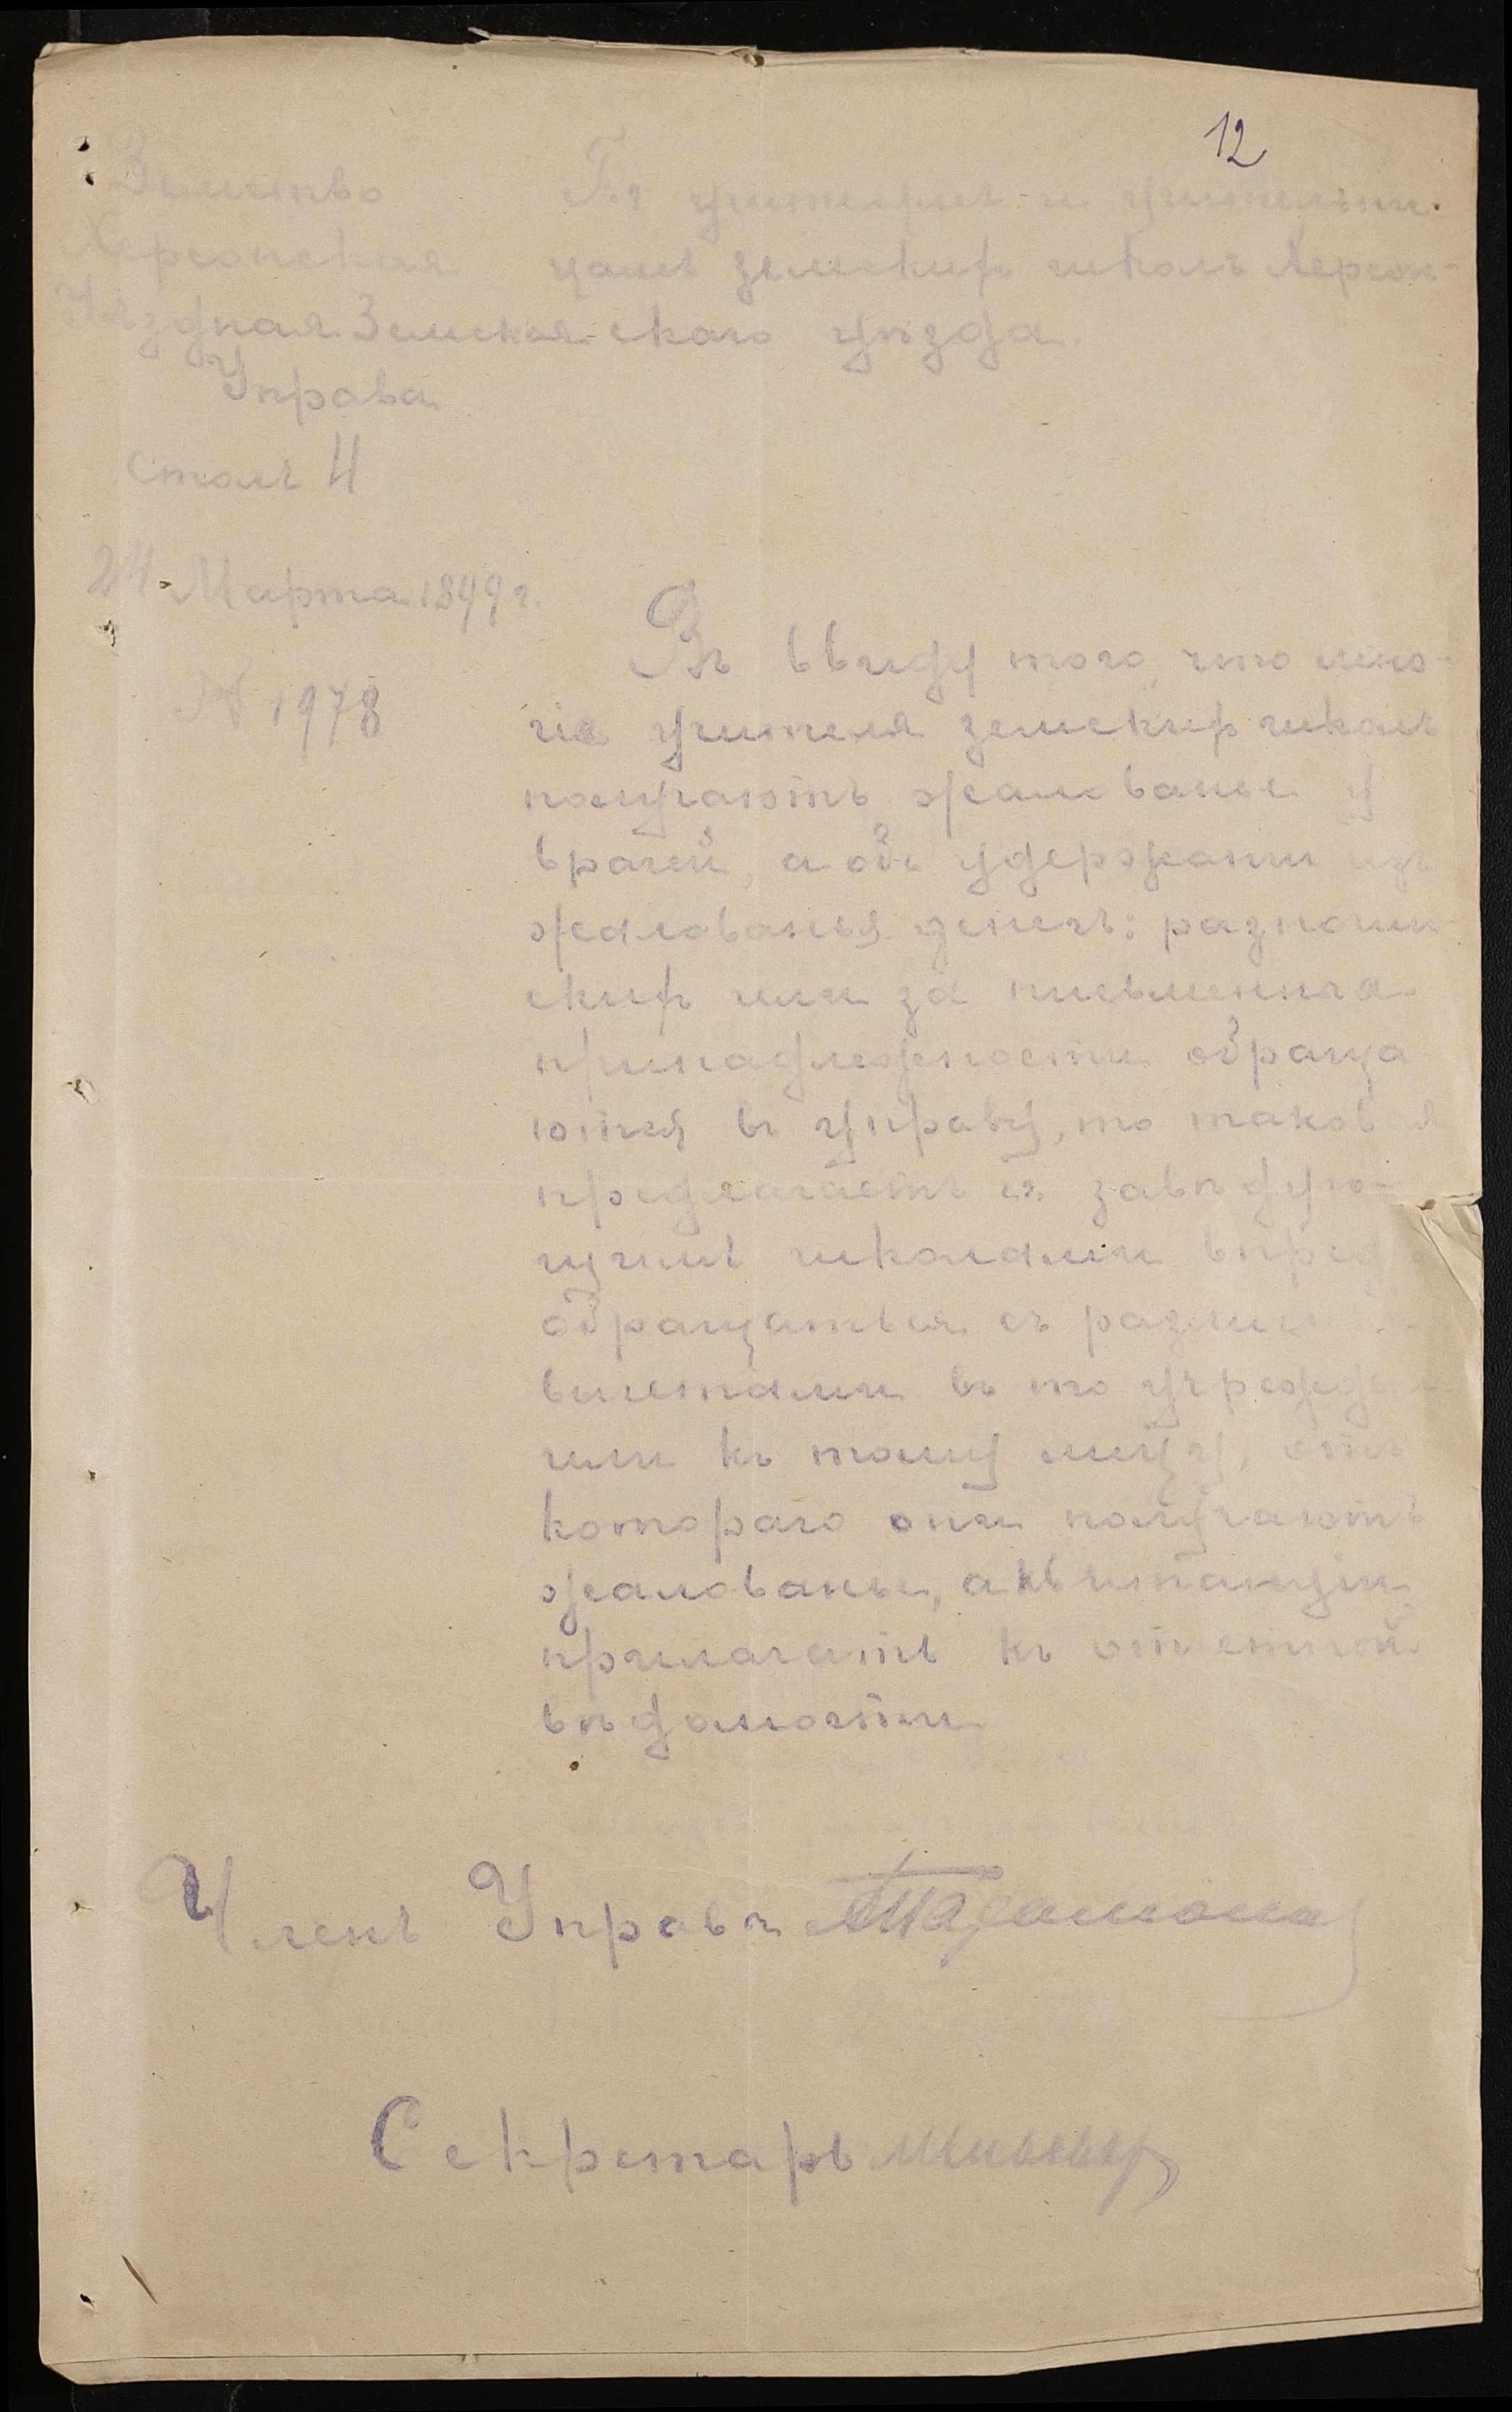 12
Земство
Херсонская
Уѣздная Земская
Управа
столъ II
24 Марта 1899 г.
№ 1978
Гг учителямъ и учительни-
цамъ земскихъ школъ Херсон-
скаго уѣзда.
Въ ввиду того, что мно-
гіе учителя земскихъ школъ
получаютъ жалованье у
врачей, а объ удержаніи изъ
жалованья денегъ:
скихъ или за письменныя
принадлежности обраща
ются въ управу, то таковая
предлагаетъ гг. завѣдую-
щимъ школами впредь
обращаться съ
въ то учрежде
или къ тому лицу, отъ
котораго они получаютъ
жалованье, а квитанціи
прилагать къ отчетной
вѣдомости
Членъ Управы
Секретарь